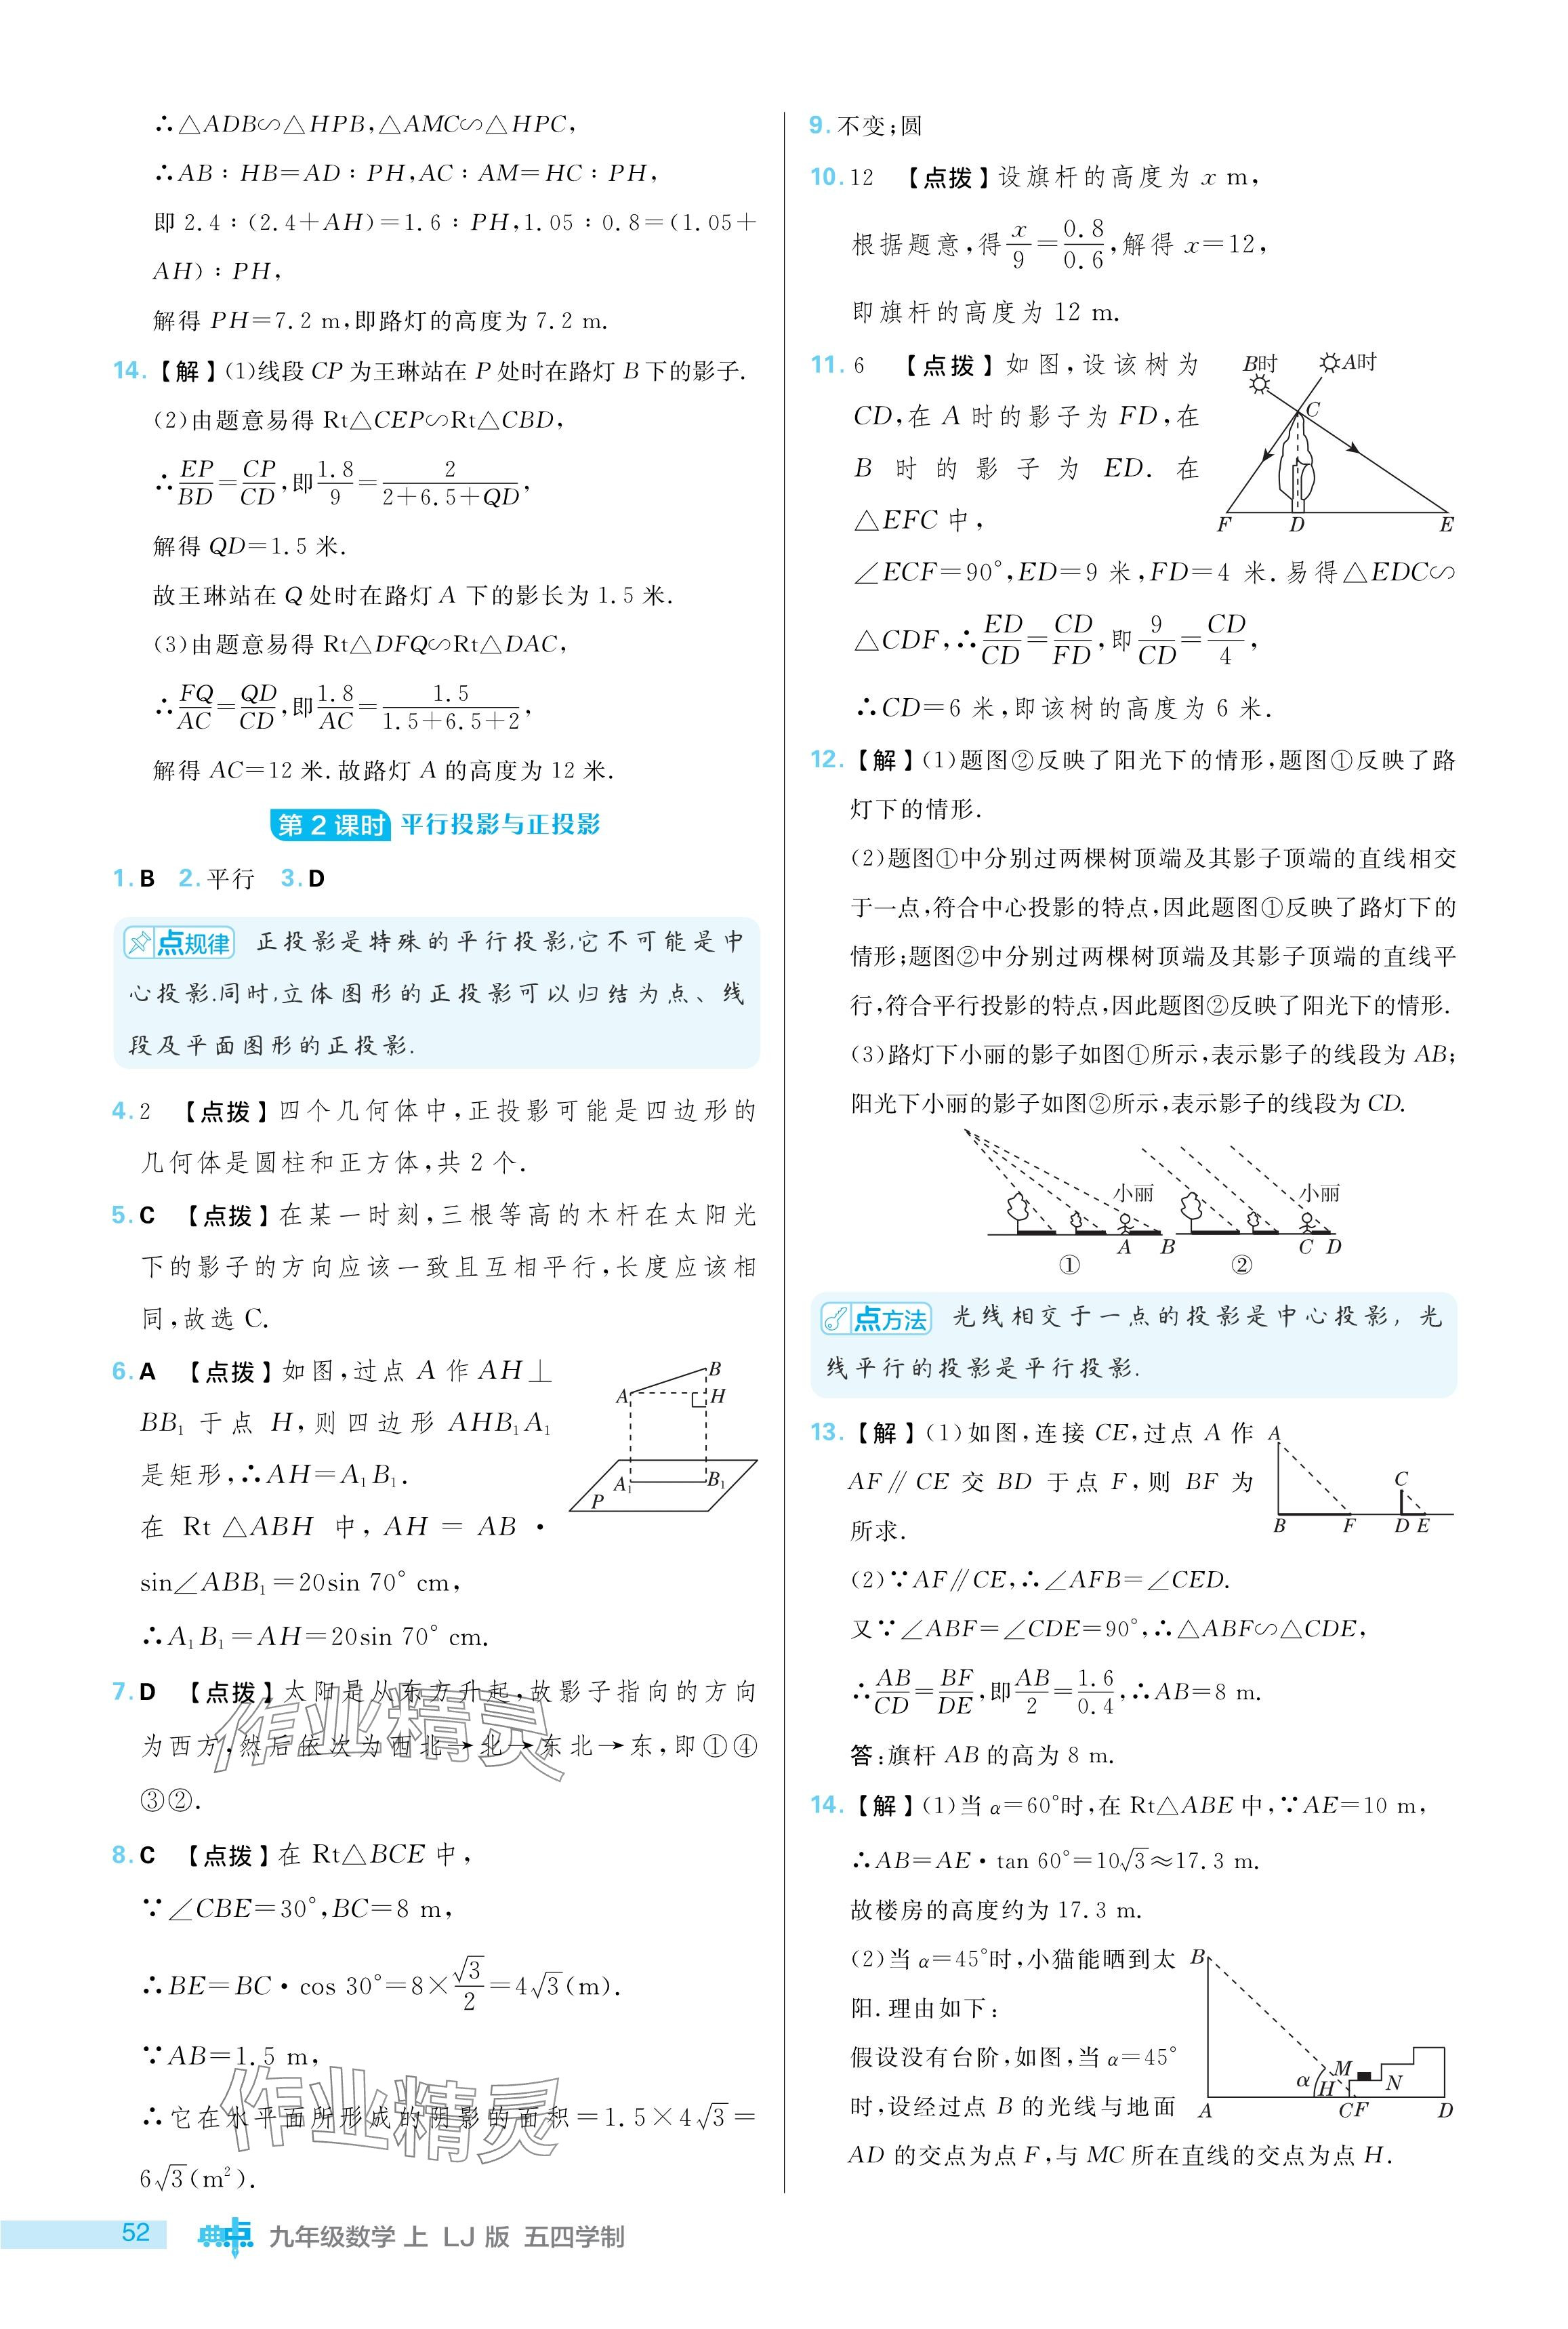 ∴△ADB∽△HPB,△AMC∽△HPC,
∴AB∶HB=AD∶PH,AC∶AM=HC∶PH,
即2.4∶(2.4+AH)=1.6∶PH,1.05∶0.8=(1.05+
AH)∶PH,
解得 PH=7.2 m,即路灯的高度为7.2 m.
14.【解】(1)线段CP为王琳站在P处时在路灯B下的影子.
(2)由题意易得 Rt△CEP∽Rt△CBD,
∴EP/BD=CP/CD,即1.8/9=2/(2+6.5+QD),
解得 QD=1.5 米.
故王琳站在Q处时在路灯A下的影长为1.5米.
(3)由题意易得 Rt△DFQ∽Rt△DAC,
∴FQ/AC=QD/CD,即1.8/AC=1.5/(1.5+6.5+2),
解得 AC=12 米.故路灯 A 的高度为12米.
第2课时 平行投影与正投影
1.B 2.平行 3.D
点规律 正投影是特殊的平行投影,它不可能是中
心投影.同时,立体图形的正投影可以归结为点、线
段及平面图形的正投影.
4.2 【点拨】四个几何体中,正投影可能是四边形的
几何体是圆柱和正方体,共2个.
5.C 【点拨】在某一时刻,三根等高的木杆在太阳光
下的影子的方向应该一致且互相平行,长度应该相
同,故选C.
6.A 【点拨】如图,过点 A 作 AH⊥
BB₁ 于点 H,则四边形 AHB₁A₁
是矩形,∴AH=A₁B₁.
在 Rt △ABH 中, AH = AB ·
sin∠ABB₁=20sin 70° cm,
∴A₁B₁=AH=20sin 70° cm.
B
A
H
A₁
B₁
P
7.D 【点拨】太阳是从东方升起,故影子指向的方向
为西方,然后依次为西北→北→东北→东,即①④
③②.
8.C 【点拨】在 Rt△BCE 中,
∵∠CBE=30°,BC=8 m,
∴BE=BC·cos 30°=8×√3/2=4√3(m).
∵AB=1.5 m,
∴它在水平面所形成的阴影的面积=1.5×4√3=
6√3(m²).
作业精灵
作业精灵
9.不变;圆
10.12 【点拨】设旗杆的高度为 x m,
根据题意,得x/9=0.8/0.6,解得 x=12,
即旗杆的高度为 12 m.
11.6 【点拨】如图,设该树为
CD,在 A 时的影子为 FD,在
B 时的影子为 ED. 在
△EFC 中,
B时
A时
C
F
D
E
∠ECF=90°,ED=9 米,FD=4 米.易得△EDC∽
△CDF,∴ED/CD=CD/FD,即9/CD=CD/4,
∴CD=6 米,即该树的高度为 6 米.
12.【解】(1)题图②反映了阳光下的情形,题图①反映了路
灯下的情形.
(2)题图①中分别过两棵树顶端及其影子顶端的直线相交
于一点,符合中心投影的特点,因此题图①反映了路灯下的
情形;题图②中分别过两棵树顶端及其影子顶端的直线平
行,符合平行投影的特点,因此题图②反映了阳光下的情形.
(3)路灯下小丽的影子如图①所示,表示影子的线段为 AB;
阳光下小丽的影子如图②所示,表示影子的线段为 CD.
小丽
小丽
A
B
C
D
①
②
点方法 光线相交于一点的投影是中心投影,光
线平行的投影是平行投影.
13.【解】(1)如图,连接 CE,过点 A 作
AF∥CE 交 BD 于点 F,则 BF 为
所求.
A
C
B
F
D
E
(2)∵AF∥CE,∴∠AFB=∠CED.
又∵∠ABF=∠CDE=90°,∴△ABF∽△CDE,
∴AB/CD=BF/DE,即AB/2=1.6/0.4,∴AB=8 m.
答:旗杆 AB 的高为 8 m.
14.【解】(1)当 α=60°时,在 Rt△ABE 中,∵AE=10 m,
∴AB=AE·tan 60°=10√3≈17.3 m.
故楼房的高度约为 17.3 m.
(2)当 α=45°时,小猫能晒到太
阳.理由如下:
假设没有台阶,如图,当 α=45°
时,设经过点 B 的光线与地面
B
M
α
H
N
A
CF
D
AD 的交点为点 F,与 MC 所在直线的交点为点 H.
52
典中点
九年级数学 上 LJ 版 五四学制